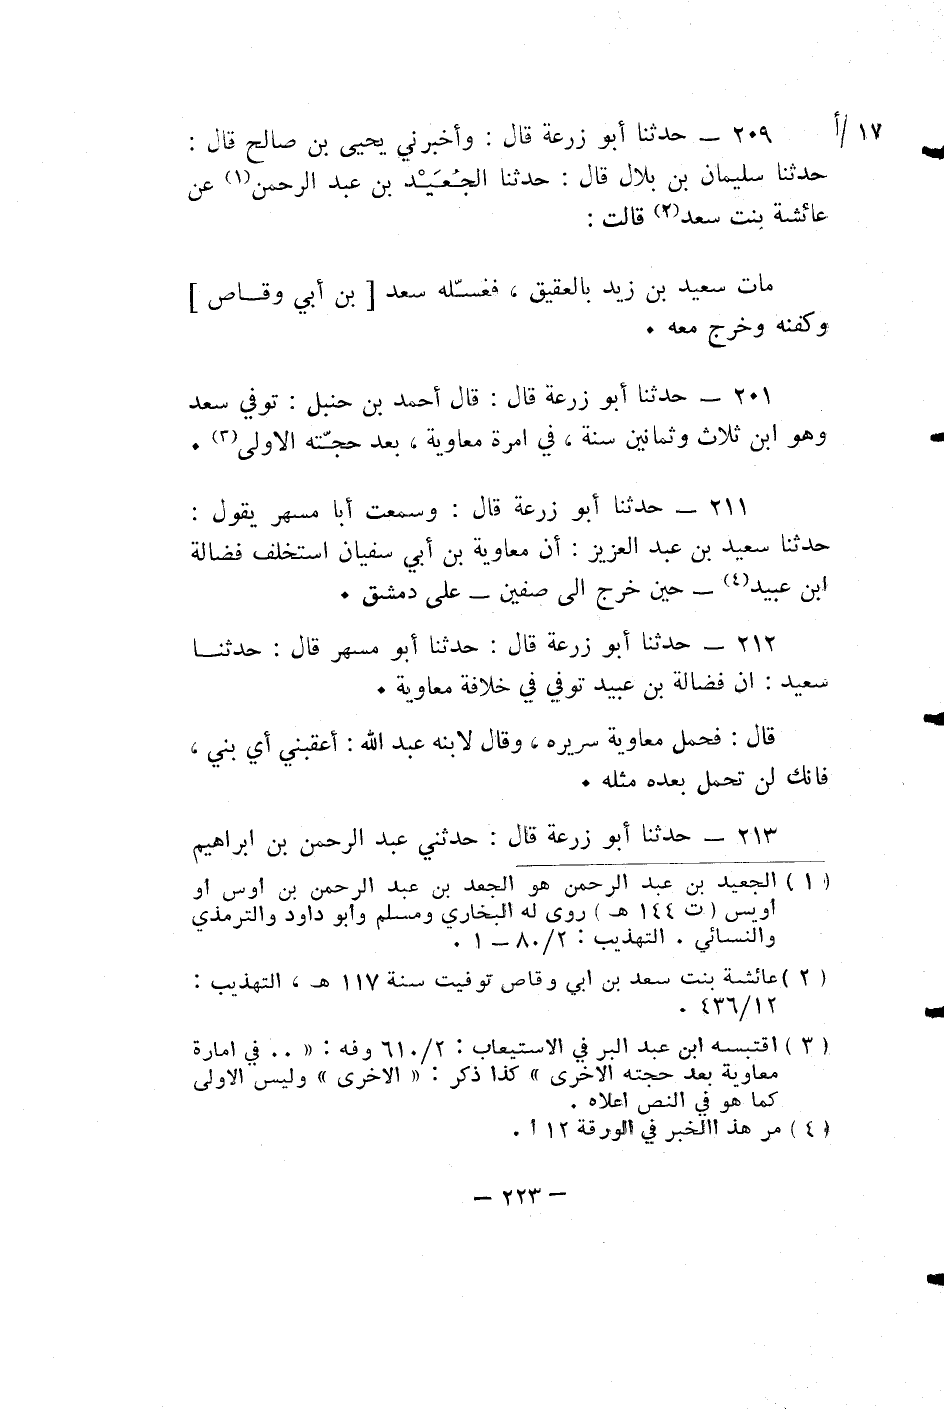 ١٧ /أ
٢٠٩ ــ حدثنا أبو زرعة قال : وأخبرني يحيى بن صالح قال :
حدثنا سليمان بن بلال قال : حدثنا الجُعَيْد بن عبد الرحمن(١) عن
عائشة بنت سعد(٢) قالت :
مات سعيد بن زيد بالعقيق ، فغسّله سعد [ بن أبي وقاص ]
وكفنه وخرج معه .
٢٠١ ــ حدثنا أبو زرعة قال : قال أحمد بن حنبل : توفي سعد
وهو ابن ثلاث وثمانين سنة ، في امرة معاوية ، بعد حجّته الاولى(٣) .
٢١١ ــ حدثنا أبو زرعة قال : وسمعت أبا مسهر يقول :
حدثنا سعيد بن عبد العزيز : أن معاوية بن أبي سفيان استخلف فضالة
ابن عبيد(٤) ــ حين خرج الى صفين ــ على دمشق .
٢١٢ ــ حدثنا أبو زرعة قال : حدثنا أبو مسهر قال : حدثنا
سعيد : ان فضالة بن عبيد توفي في خلافة معاوية .
قال : فحمل معاوية سريره ، وقال لابنه عبد الله : أعقبني أي بني ،
فانك لن تحمل بعده مثله .
٢١٣ ــ حدثنا أبو زرعة قال : حدثني عبد الرحمن بن ابراهيم
( ١ ) الجعيد بن عبد الرحمن هو الجعد بن عبد الرحمن بن أوس او
اويس ( ت ١٤٤ هـ ) روى له البخاري ومسلم وأبو داود والترمذي
والنسائي . التهذيب : ٨٠/٢ – ١ .
( ٢ ) عائشة بنت سعد بن ابي وقاص توفيت سنة ١١٧ هـ ، التهذيب :
٤٣٦/١٢ .
( ٣ ) اقتبسه ابن عبد البر في الاستيعاب : ٦١٠/٢ وفه : « .. في امارة
معاوية بعد حجته الاخرى » كذا ذكر : « الاخرى » وليس الاولى
كما هو في النص اعلاه .
( ٤ ) مر هذ االخبر في الورقة ١٢ أ .
– ٢٢٣ –